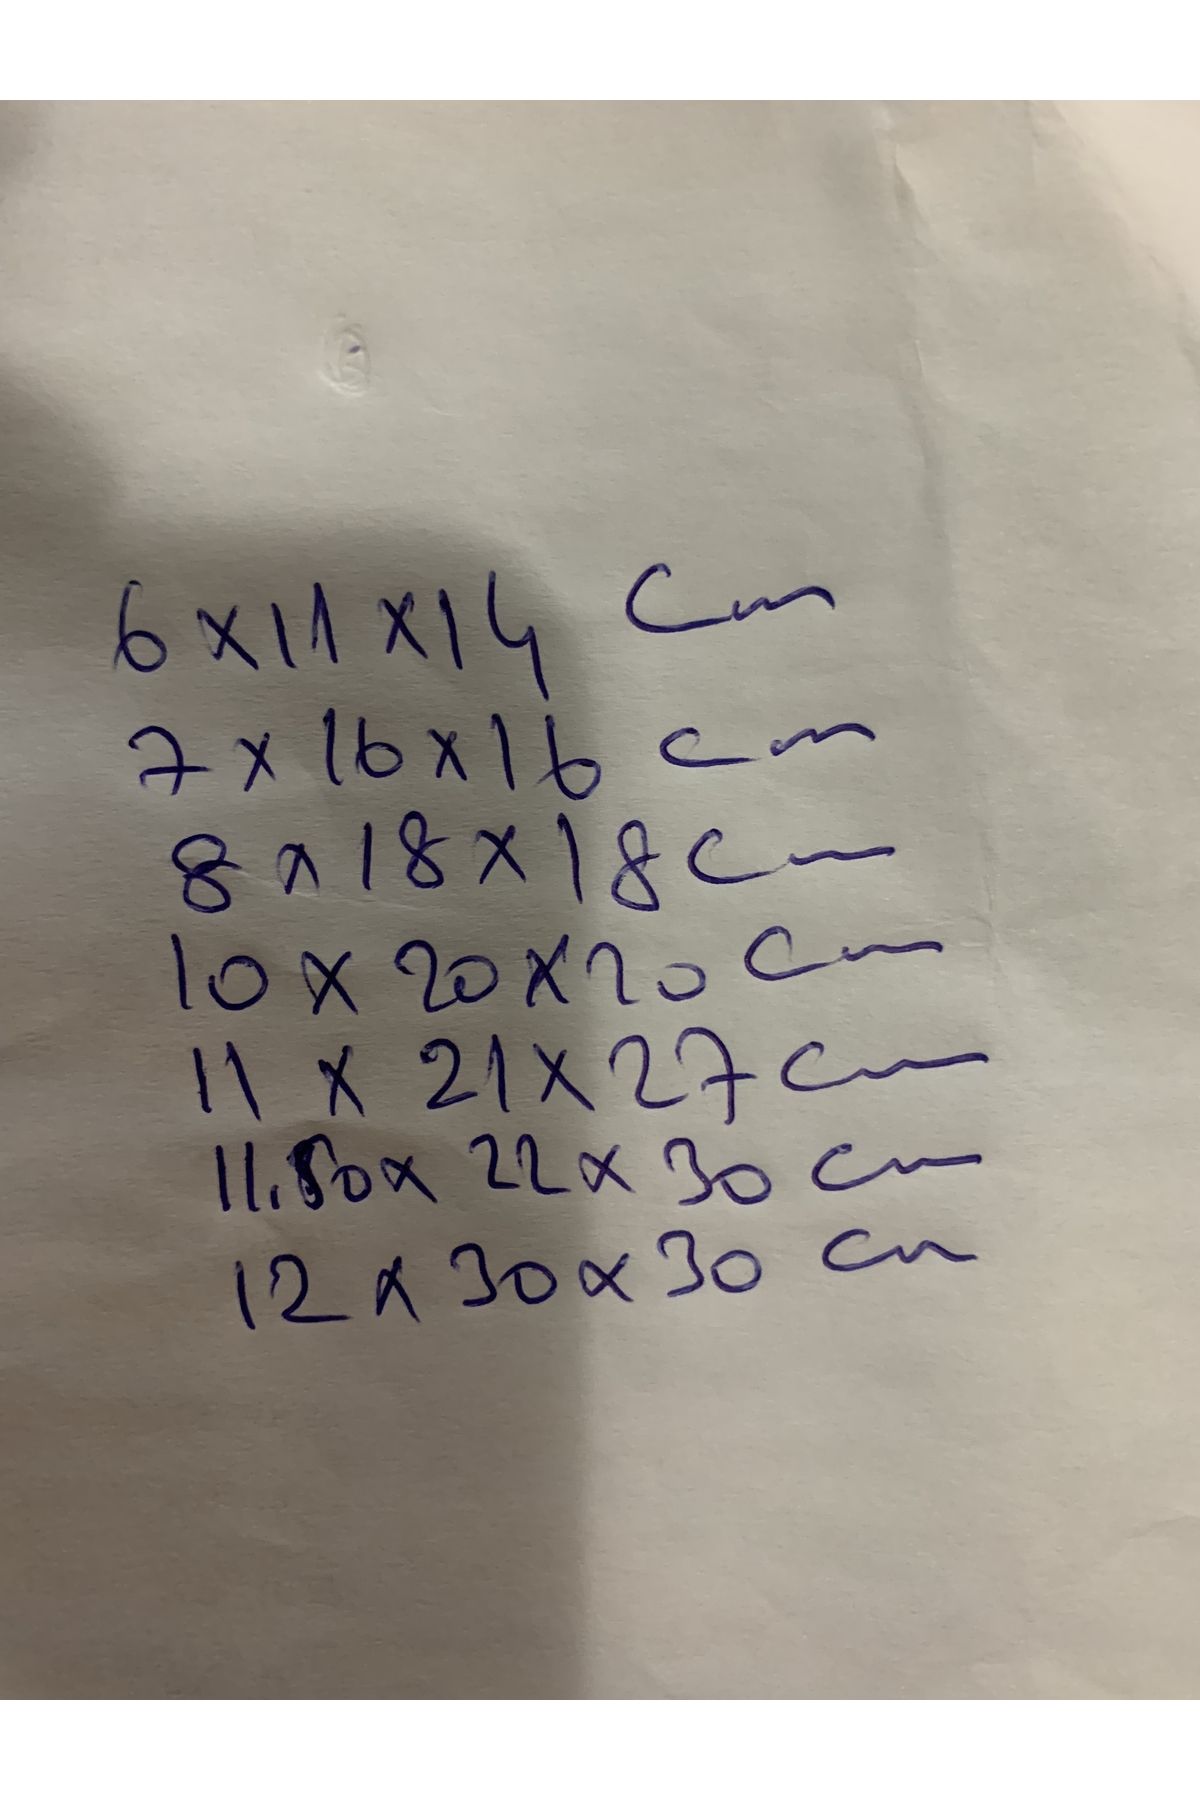 6 x 11 x 14 cm
7 x 16 x 16 cm
8 x 18 x 18 cm
10 x 20 x 20 cm
11 x 21 x 27 cm
11.50 x 22 x 30 cm
12 x 30 x 30 cm